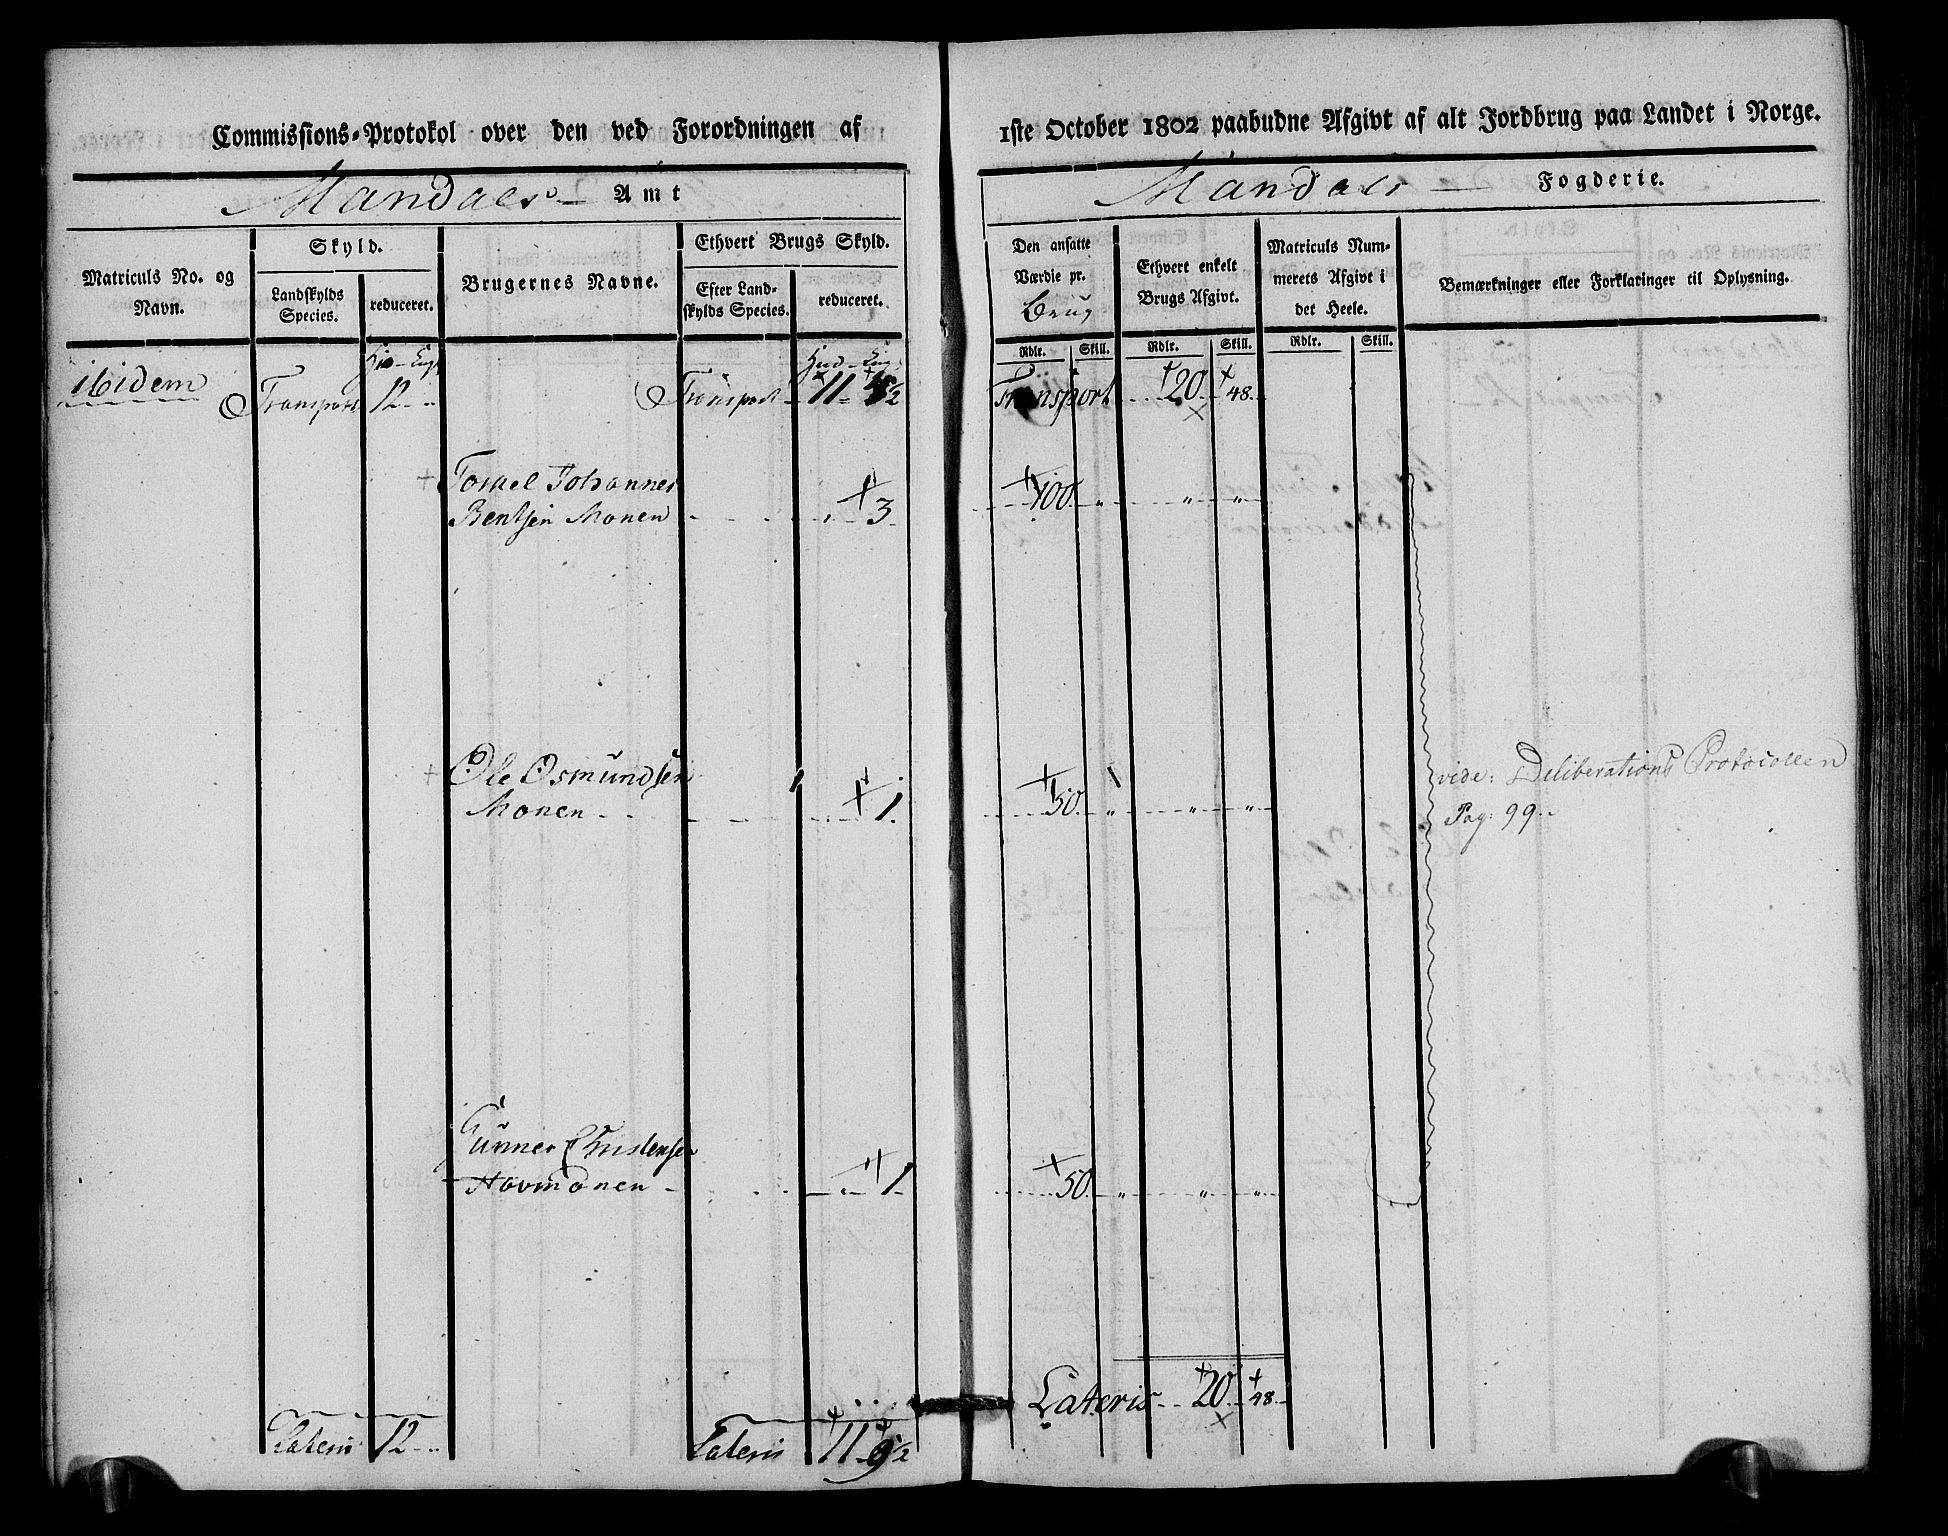 Commissions-Protokol over den ved Forordningen af 1ste October 1802 paabudne Afgivt af alt Jordbrug paa Landet i Norge.
Mandals Amt
Mandals Fogderie.
Matriculs No. og Navn.
Skyld.
Landskylds Species.
reduceret.
Brugernes Navne.
Ethvert Brugs Skyld.
Efter Landskylds Species.
reduceret.
Den ansatte Værdie pr. Brug
Ethvert enkelt Brugs Afgivt.
Matriculs Nummerets Afgivt i det Heele.
Bemærkninger eller Forklaringer til Oplysning.
Rdlr. Skill. Rdlr. Skill. Rdlr. Skill.
ibidem Transport 12 Transport 11 Transport 20 48
Tosael Johannes
Bentsen Monen 3 100 " " "
Ole Osmundsen
Monen 1 50 " " "
vide: Deliberations Protocollen
Pag: 99
Gunner Christensen
Hovmonen 1 50 " " "
Lateris 20 48
Lateris 12 Lateris 11 9 1/2